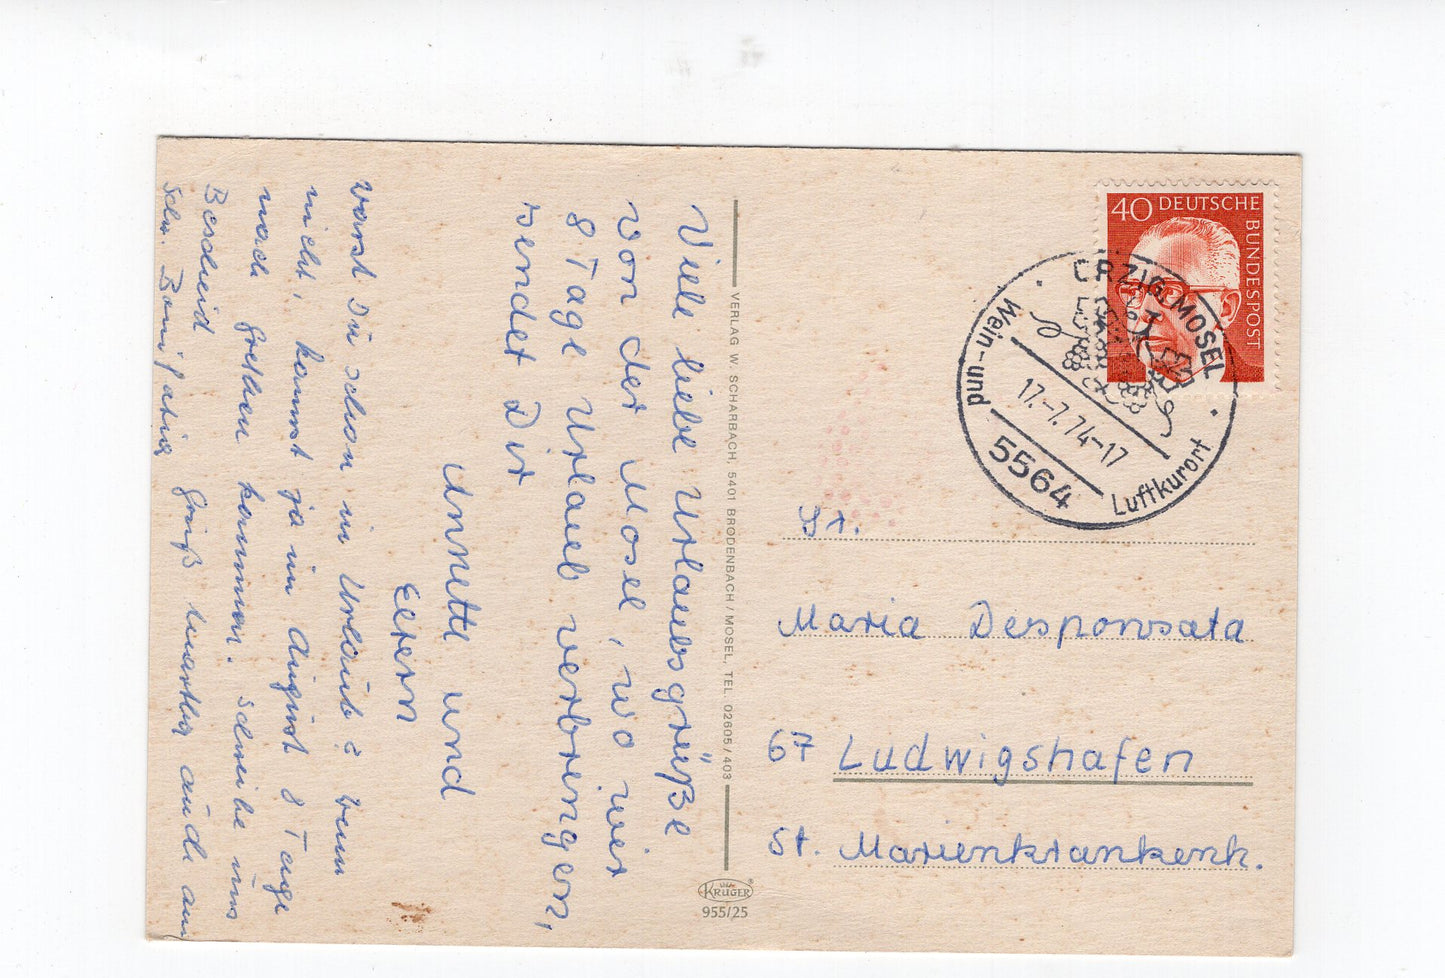 Viele liebe Urlaubsgrüße
von der Mosel, wo wir
8 Tage Urlaub verbringen,
sendet Dir
Annette und
Eltern
warst Du schon in Urlaub? wenn
nicht, kommst ja im August 8 Tage
nach kommen. schreibe uns
Bescheid
Schw. Bonifatia Gruß wartet auch auf
VERLAG W. SCHARBACH, 5401 BRODENBACH / MOSEL, TEL. 02605 / 403
KRÜGER
955/25
40 DEUTSCHE
BUNDESPOST
ÜRZIG, MOSEL
Wein- und
Luftkurort
17.-7.74-17
5564
Sr.
Maria Desponsata
67 Ludwigshafen
St. Marienkrankenh.